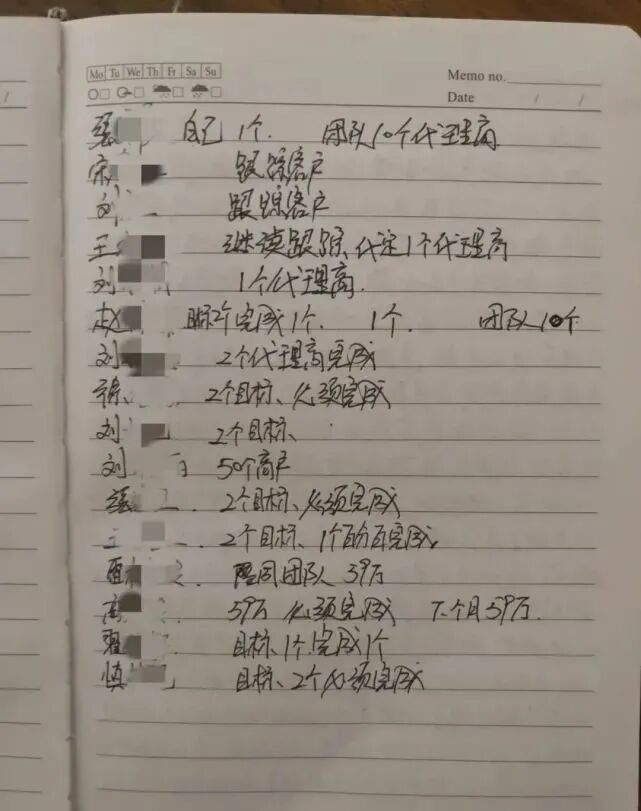 Mo Tu We Th Fr Sa Su
Memo no.
Date / /
自己 1个. 团队10个代理商
宋 跟踪客户
刘 跟踪客户
王 继续跟踪、代定1个代理商
刘 1个代理商.
赵 目标2个完成1个. 1个. 团队10个
刘 2个代理商完成
2个目标、必须完成
刘 2个目标、
刘 50个商户
2个目标、必须完成
王 2个目标、1个百分百完成.
团队 39万
高 39万 必须完成 下个月39万.
翟 目标、1个.完成1个
慎 目标、2个必须完成